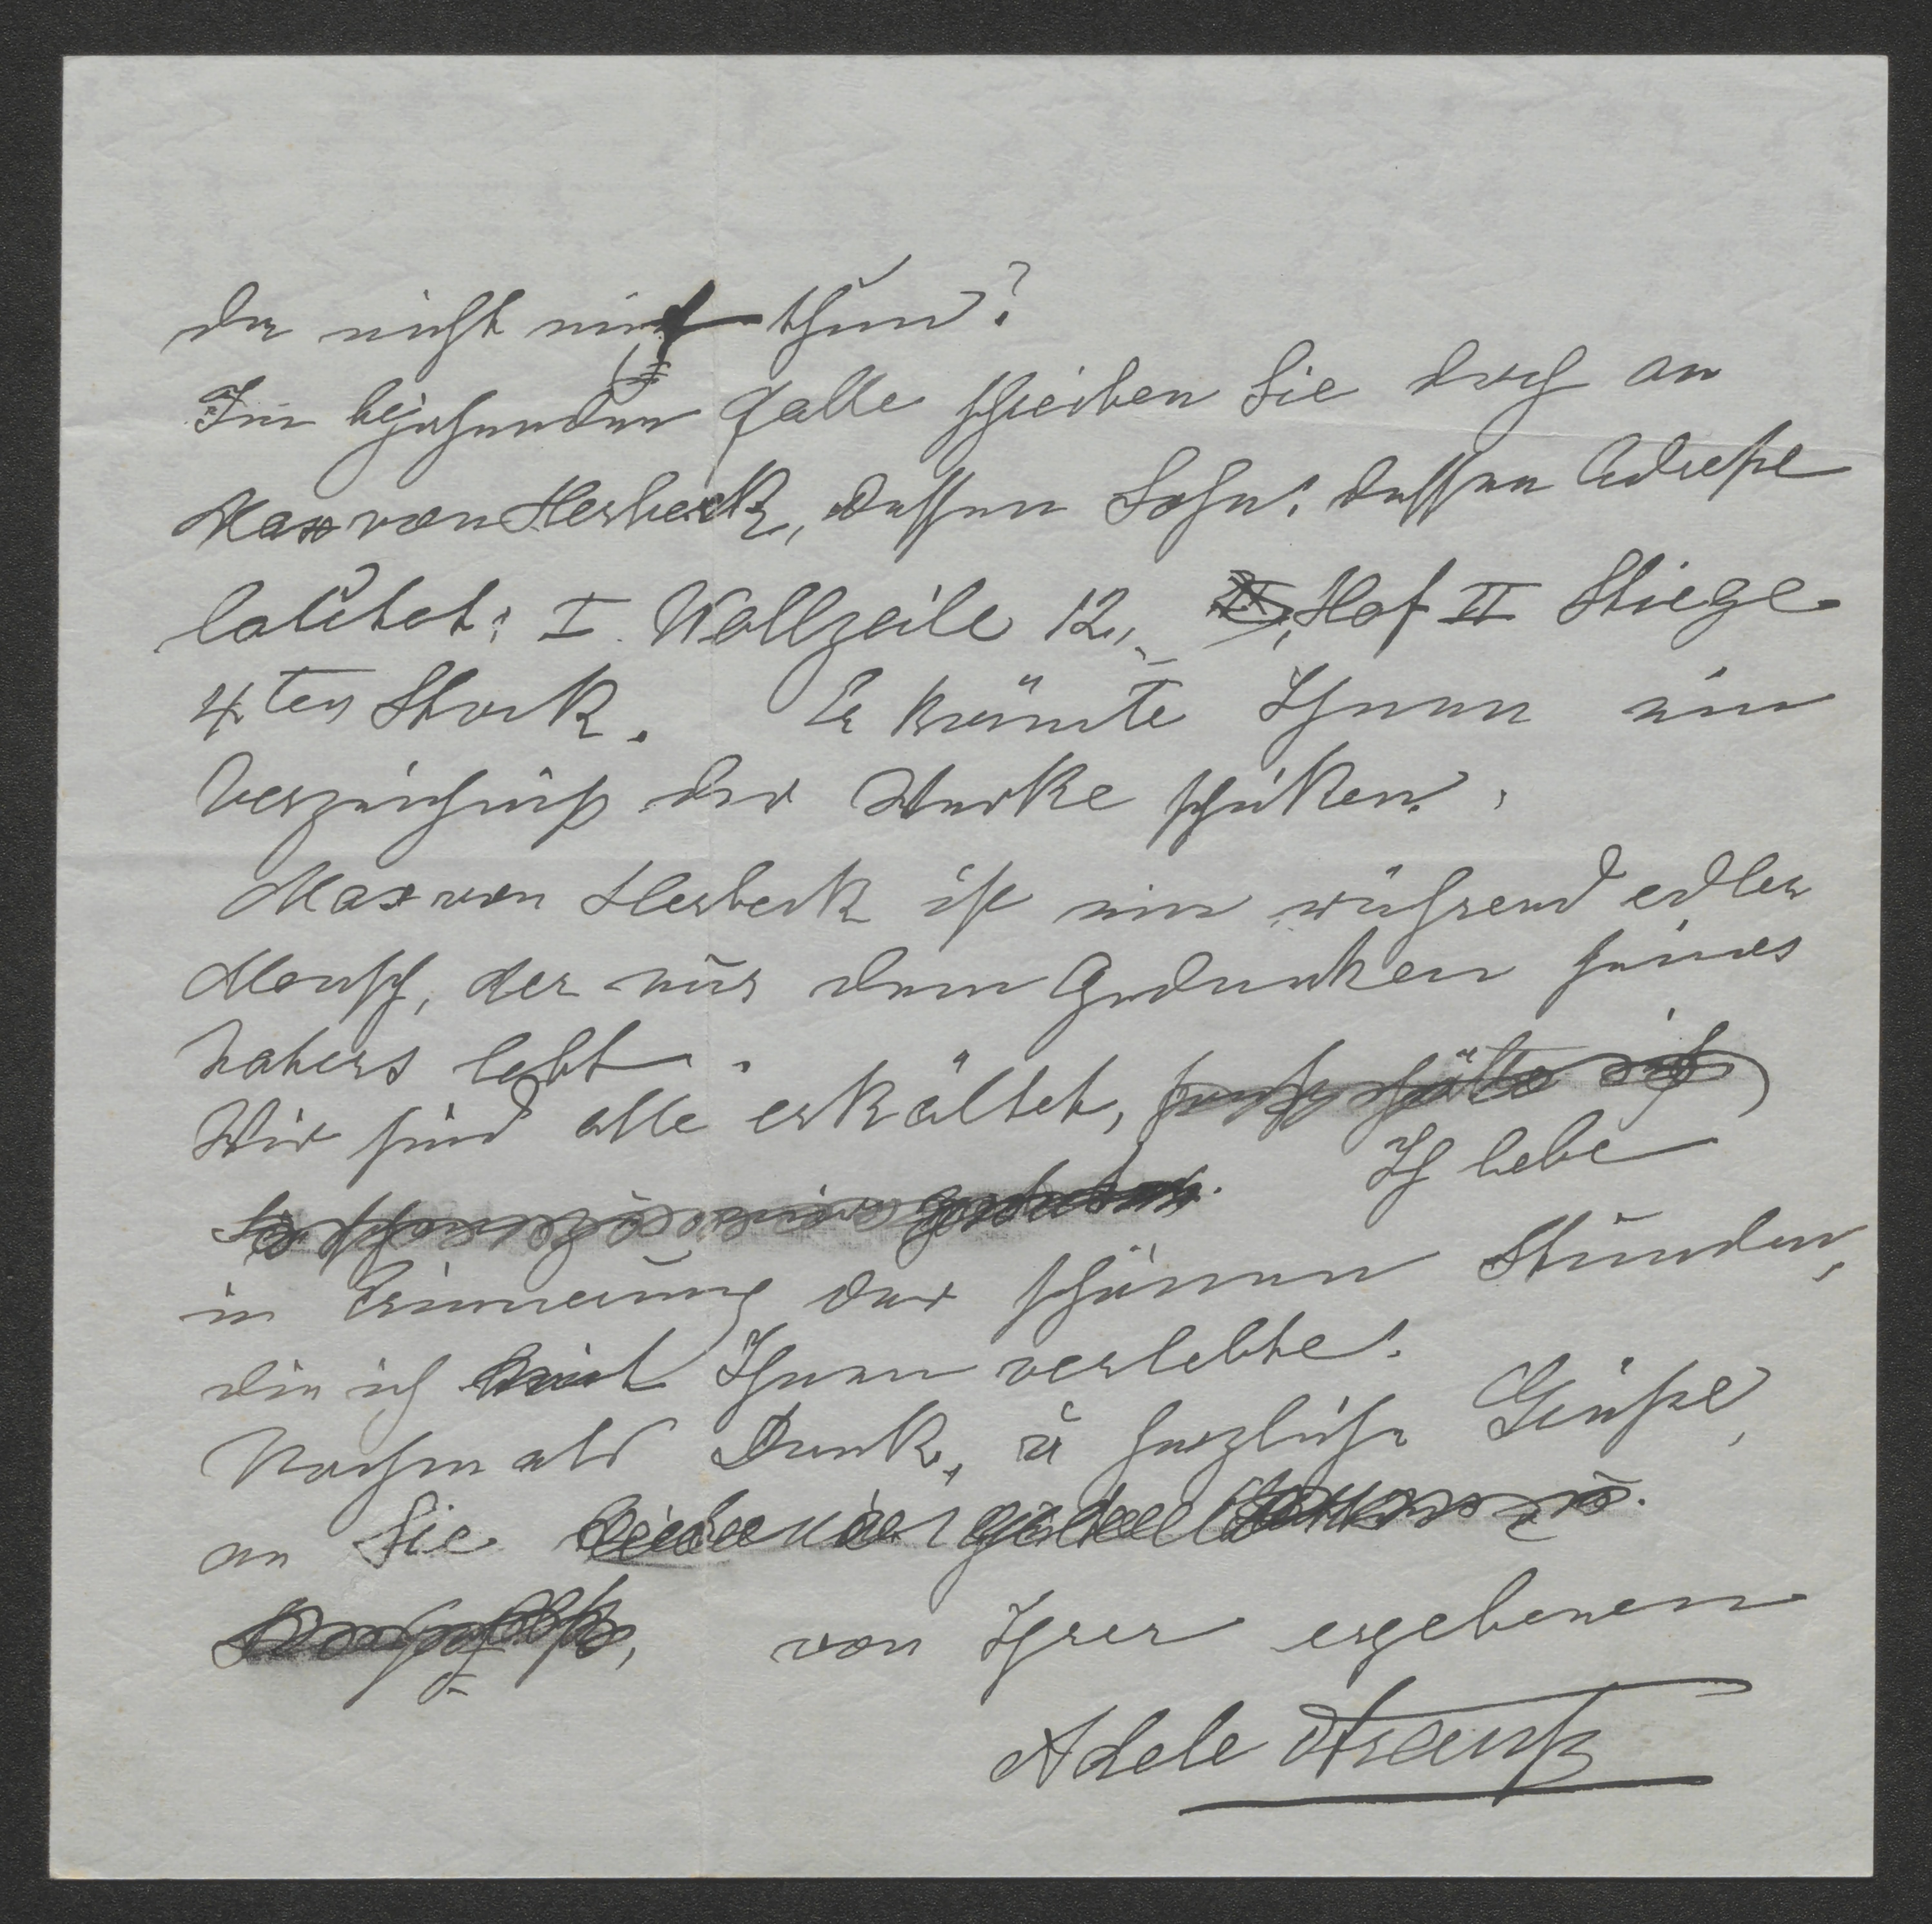 da nicht mit thun?
Im bejahenden Falle schreiben Sie doch an
Max von Herbeck, dessen Sohn. dessen Adreße
lautet: I. Wollzeile 12., Hof II Stiege
4ten Stock. Er könnte Ihnen ein
Verzeichniß der Werke schicken.
Max von Herbeck ist ein rührend edler
Mensch, der nur dem Gedenken seines
Vaters lebt.
Wir sind alle erkältet, sonst hätte ich
Sie schon zu mir gebeten. Ich lebe
in Erinnerung der schönen Stunden,
die ich mit Ihnen verlebte.
Nochmals Dank, u herzliche Grüße,
an Sie
von Ihrer ergebenen
Adele Strauß